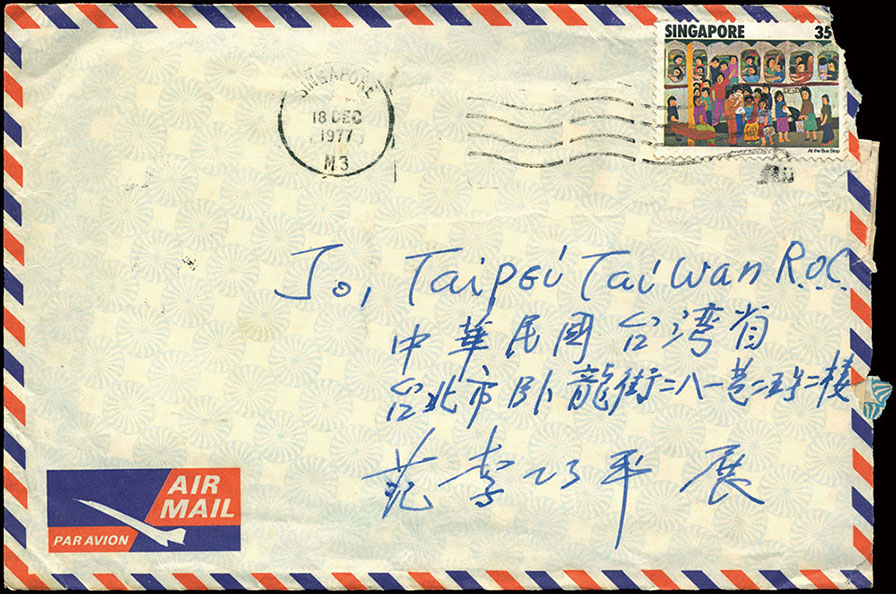 SINGAPORE 35
At the Bus Stop
SINGAPORE
18 DEC
1977
M3
To, Taipei Taiwan R.O.C.
中華民國台湾省
台北市卧龍街二八一巷二五号二楼
范李 平展
AIR
MAIL
PAR AVION